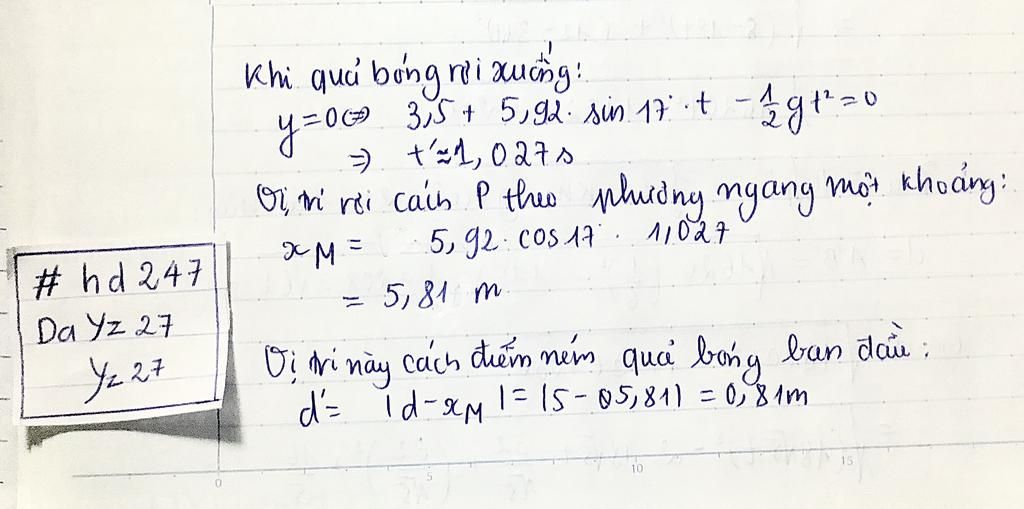 Khi quả bóng rơi xuống:
y=0 ⇔ 3,5 + 5,92. sin 17°. t - 1/2 gt² = 0
⇒ t' ≈ 1,027s
Vị trí rơi cách P theo phương ngang một khoảng:
x_M = 5,92. cos 17. 1,027
= 5,81 m
Vị trí này cách điểm ném quả bóng ban đầu:
d' = |d-x_M| = |5 - 05,81| = 0,81m
# hd 247
Da Yz 27
Yz 27
0 5 10 15